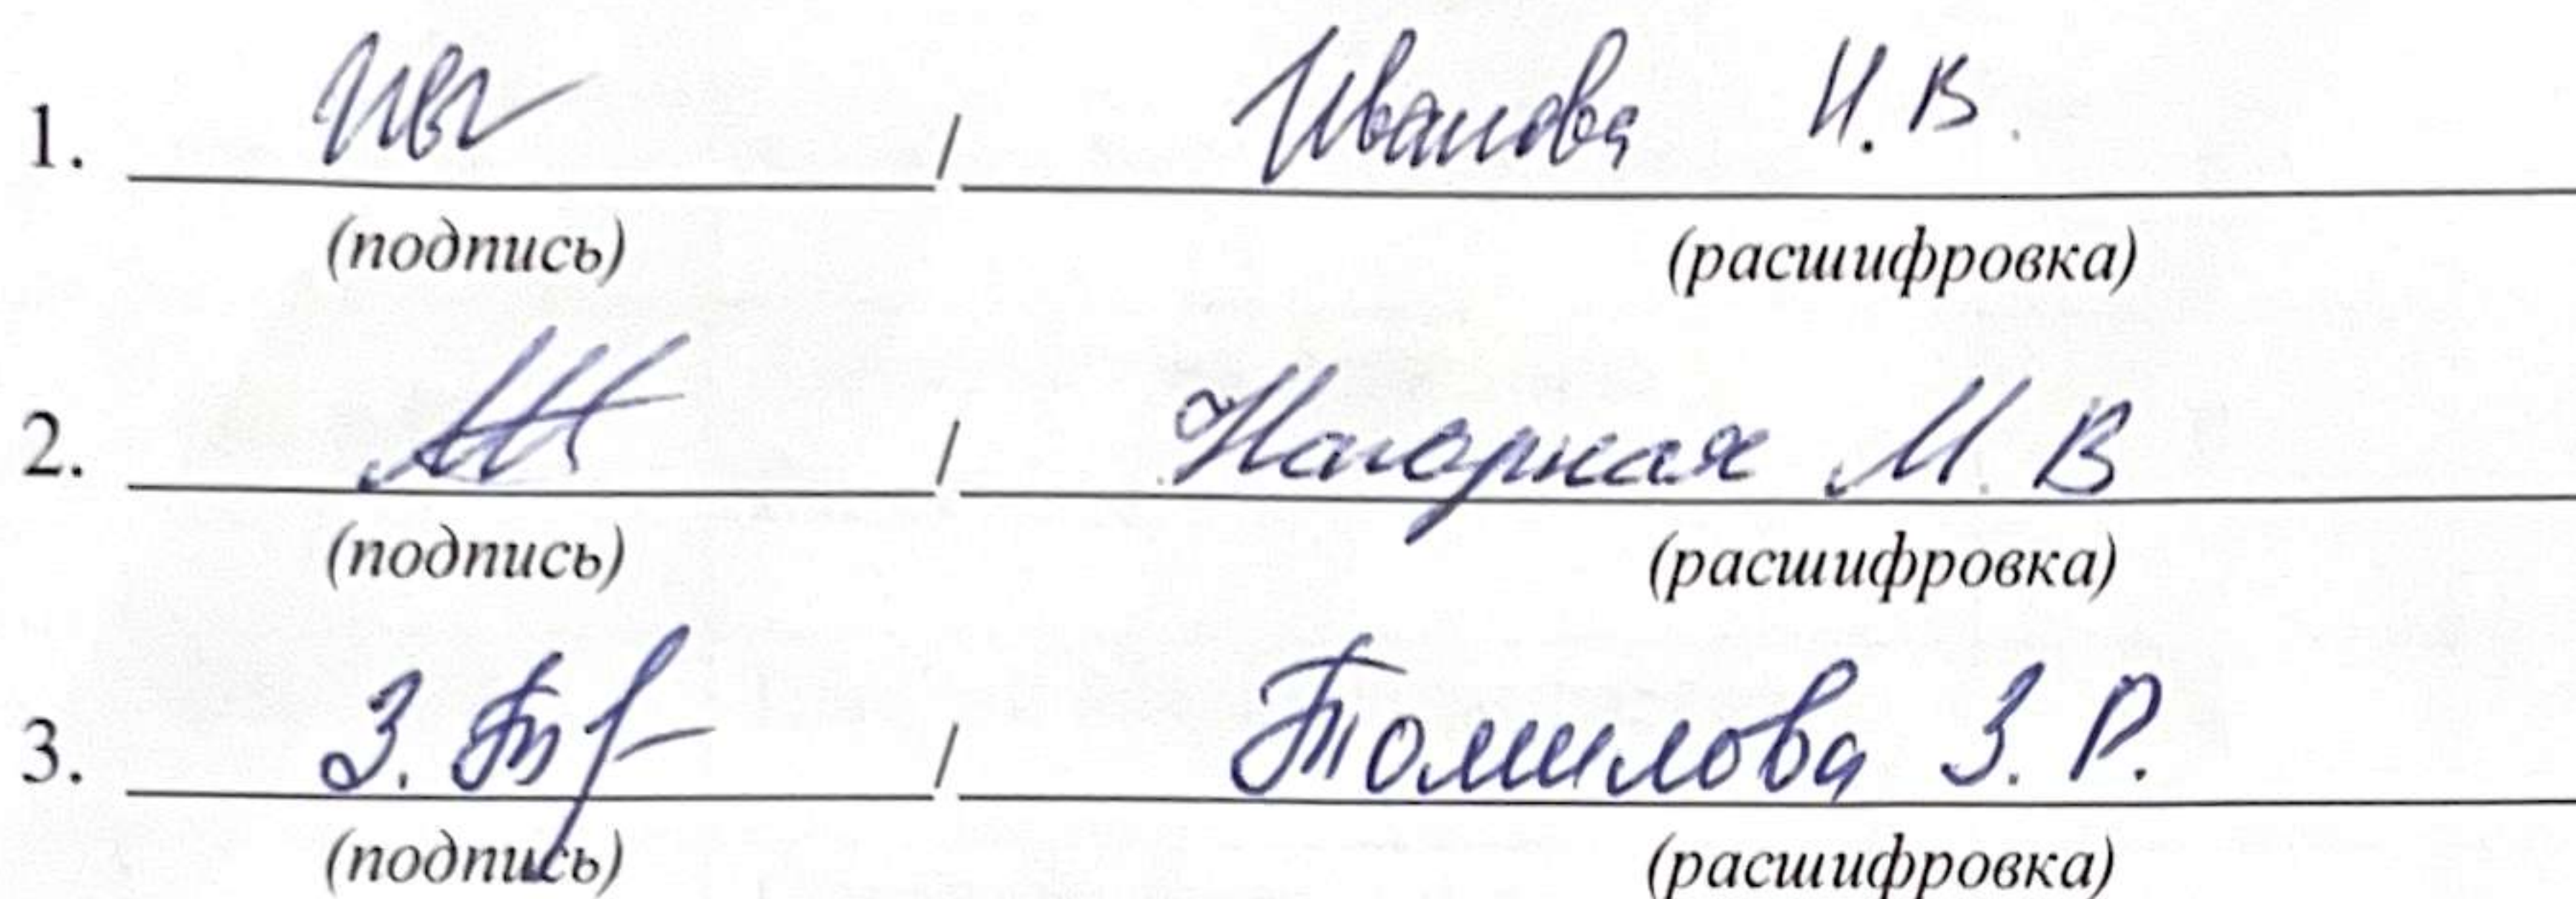 1. / Иванова И. В.
(подпись) (расшифровка)
2. / Нагорная М. В
(подпись) (расшифровка)
3. З. / Томилова З. Р.
(подпись) (расшифровка)